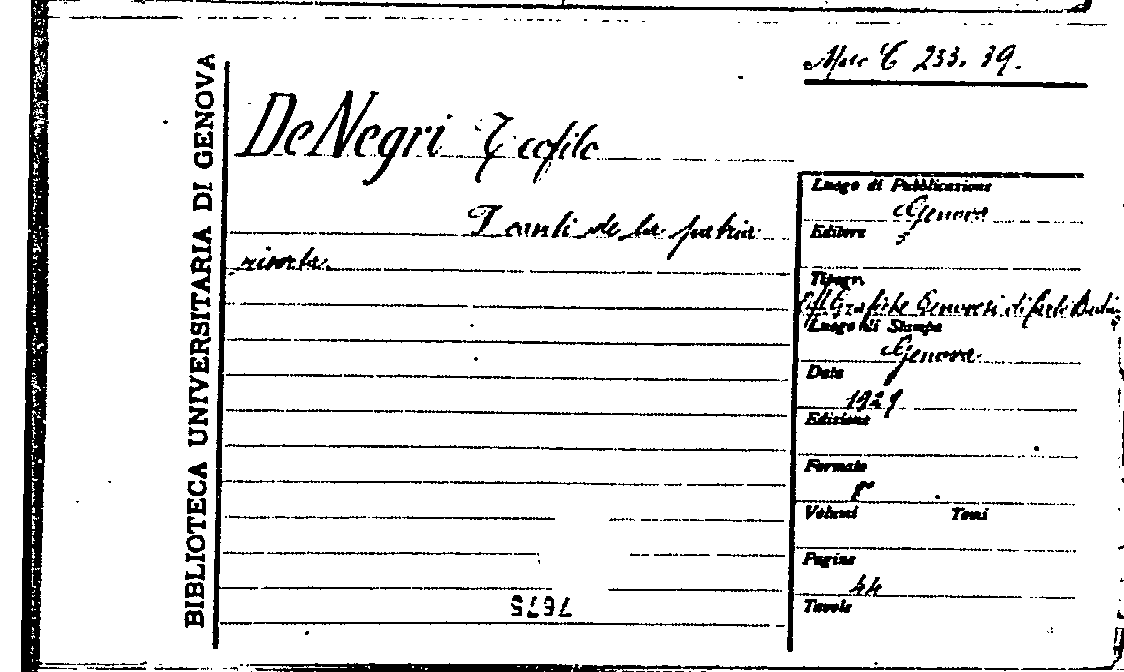 Misc C 233. 39.
BIBLIOTECA UNIVERSITARIA DI GENOVA
De Negri Teofilo
I canti de la patria
risorta.
Luogo di Pubblicazione
Genova
Editore
Tipogr.
Grafiche Genovesi di
Luogo di Stampa
Genova
Data
1929
Edizione
Formato
8°
Volumi Tomi
Pagine
44
Tavole
7675